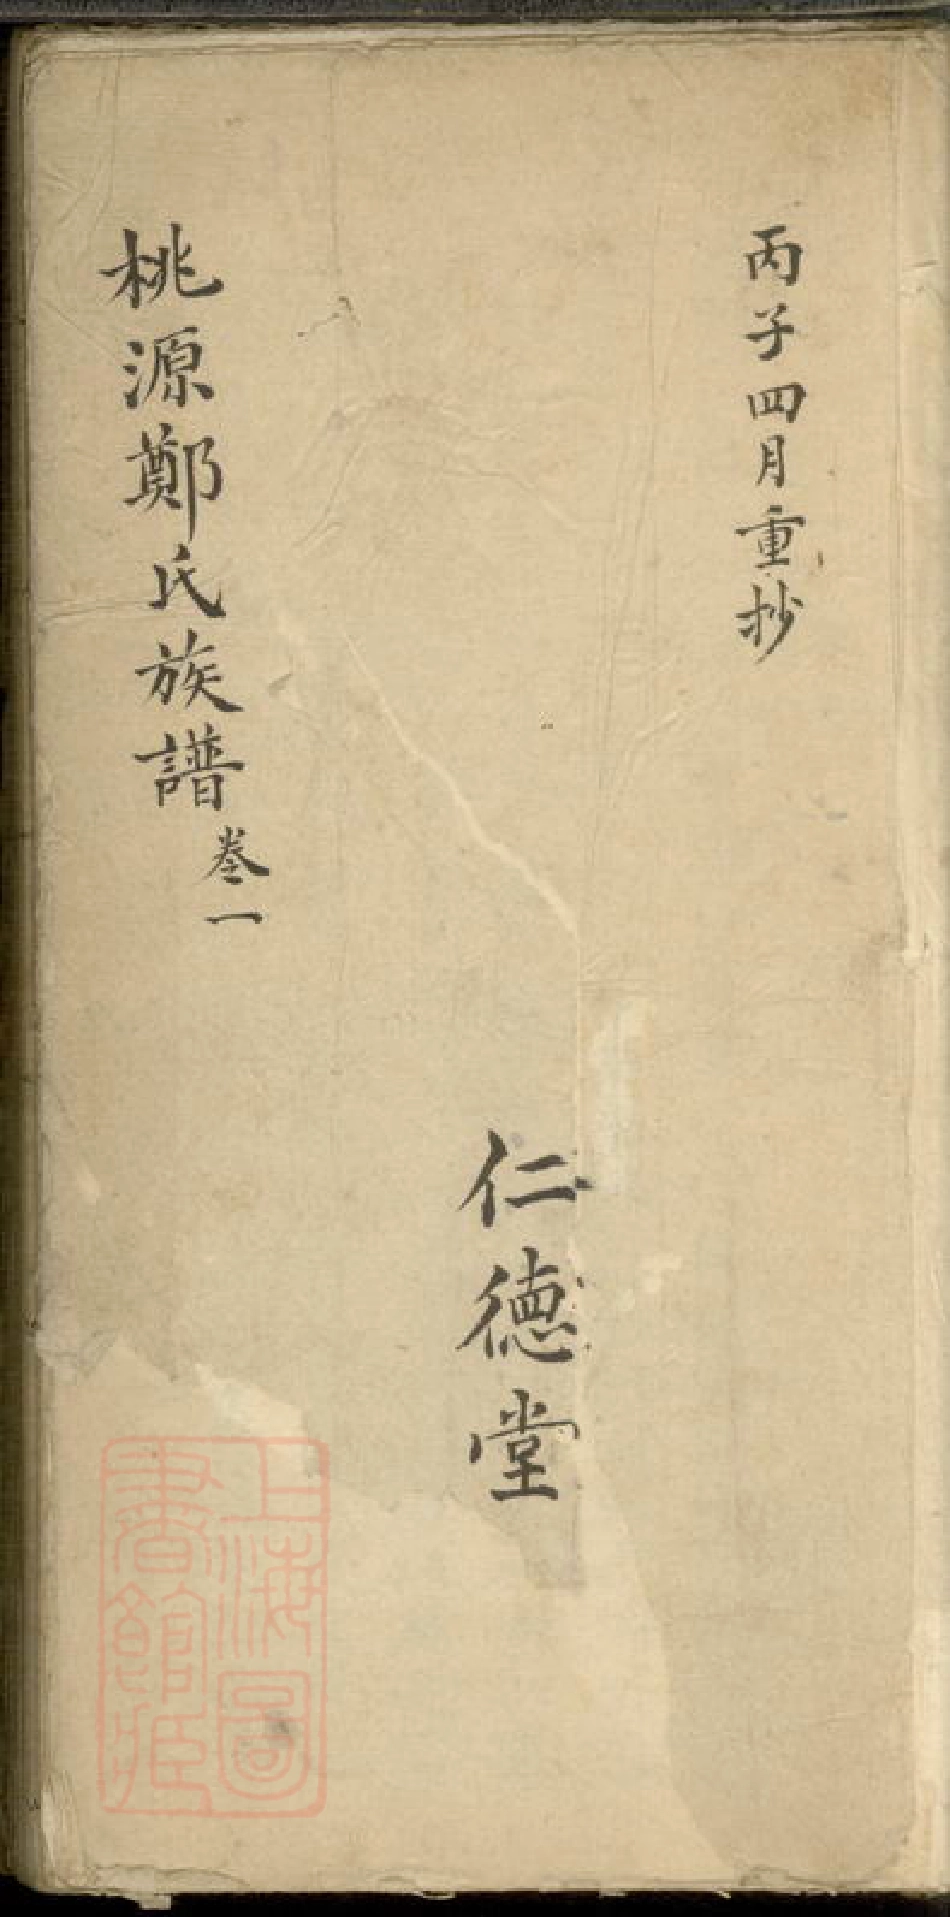 丙子四月重抄
仁德堂
桃源鄭氏族譜卷一
上海圖
書館藏